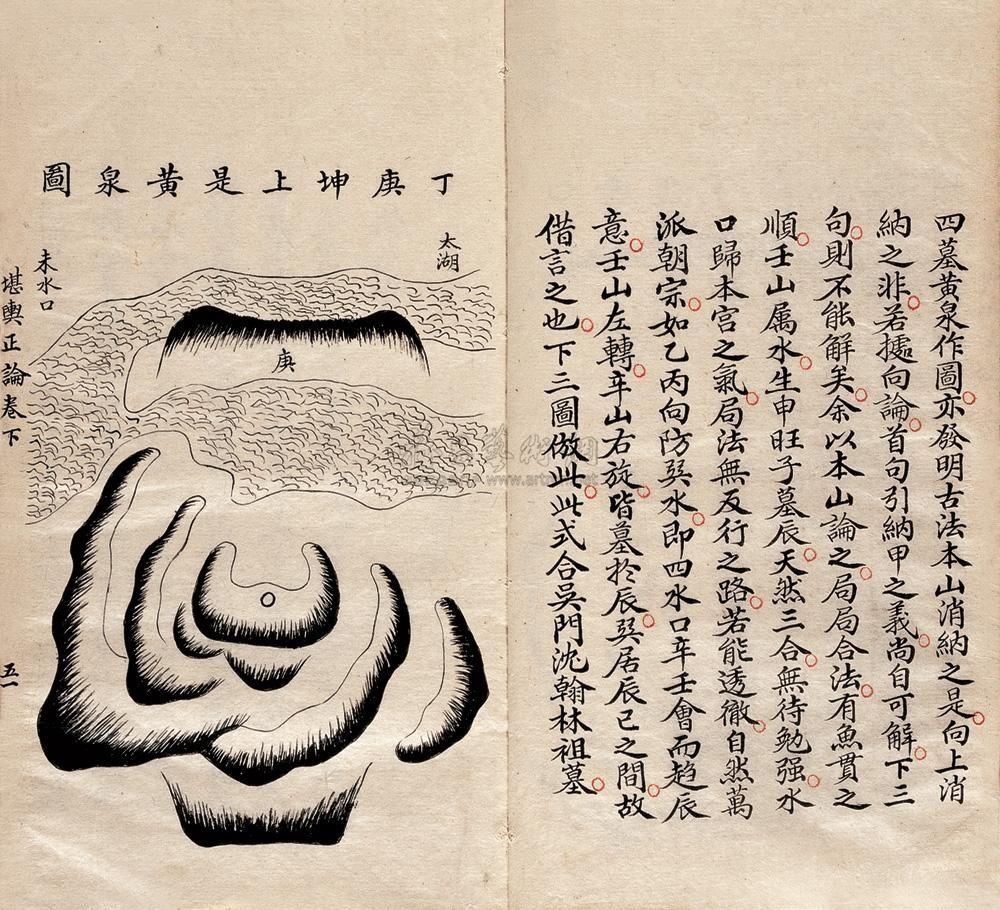 四墓黃泉作圖亦發明古法本山消納之是向上消
納之非若據向論首句引納甲之義尚自可解下三
句則不能解矣余以本山論之局局合法有魚貫之
順壬山属水生申旺子墓辰天然三合無待勉强水
口歸本宮之氣局法無反行之路若能透徹自然萬
派朝宗如乙丙向防巽水即四水口辛壬會而趋辰
意壬山左轉辛山右旋皆墓於辰巽居辰巳之間故
借言之也下三圖倣此此式合吳門沈翰林祖墓
丁庚坤上是黃泉圖
太湖
庚
未水口
堪輿正論卷下
五一
www.art